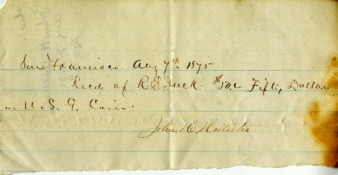 San Francisco Aug 7th 1875
Recd of R E Jack $50 Fifty Dollars
in U.S. G. Coin.
John H. Hollister